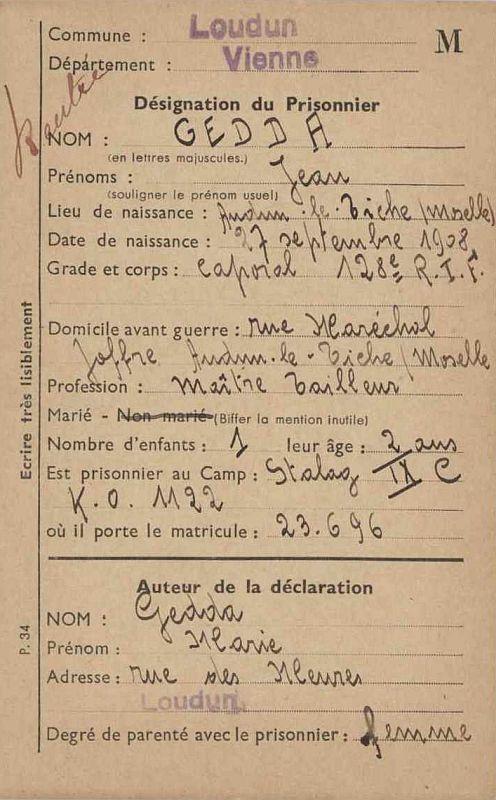 Commune : Loudun
M
Département : Vienne
Désignation du Prisonnier
NOM : GEDDA
(en lettres majuscules.)
Prénoms : Jean
(souligner le prénom usuel)
Lieu de naissance : Audun-le-Tiche (Moselle)
Date de naissance : 27 septembre 1908
Grade et corps : Caporal 128e R.I.F.
Domicile avant guerre : rue Maréchal
Joffre Audun-le-Tiche (Moselle
Profession : Maître Tailleur
Marié - Non marié (Biffer la mention inutile)
Nombre d'enfants : 1 leur âge : 2 ans
Est prisonnier au Camp : Stalag IX C
K.O. 1122
où il porte le matricule : 23.696
Auteur de la déclaration
NOM : Gedda
Prénom : Marie
Adresse : rue des Meures
Loudun.
Degré de parenté avec le prisonnier : femme
Ecrire très lisiblement
P. 34